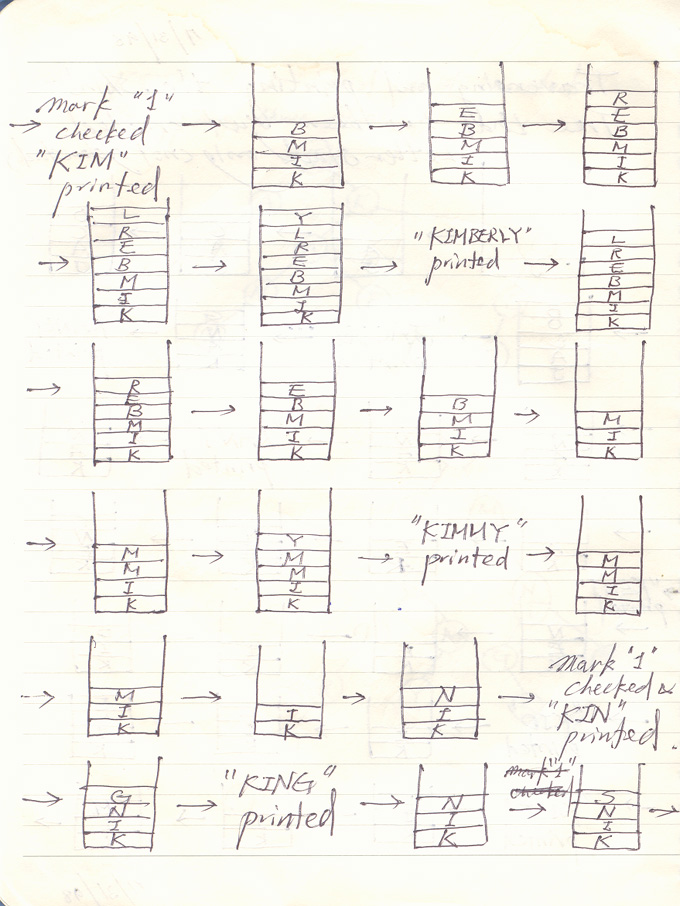 Mark "1"
checked
"KIM"
printed
B
M
I
K
E
B
M
I
K
R
E
B
M
I
K
L
R
E
B
M
I
K
Y
L
R
E
B
M
I
K
"KIMBERLY"
printed
L
R
E
B
M
I
K
R
E
B
M
I
K
E
B
M
I
K
B
M
I
K
M
I
K
M
M
I
K
Y
M
M
I
K
"KIMMY"
printed
M
M
I
K
M
I
K
I
K
N
I
K
Mark "1"
checked &
"KIN"
printed.
G
N
I
K
"KING"
printed
N
I
K
Mark "1"
checked
S
N
I
K